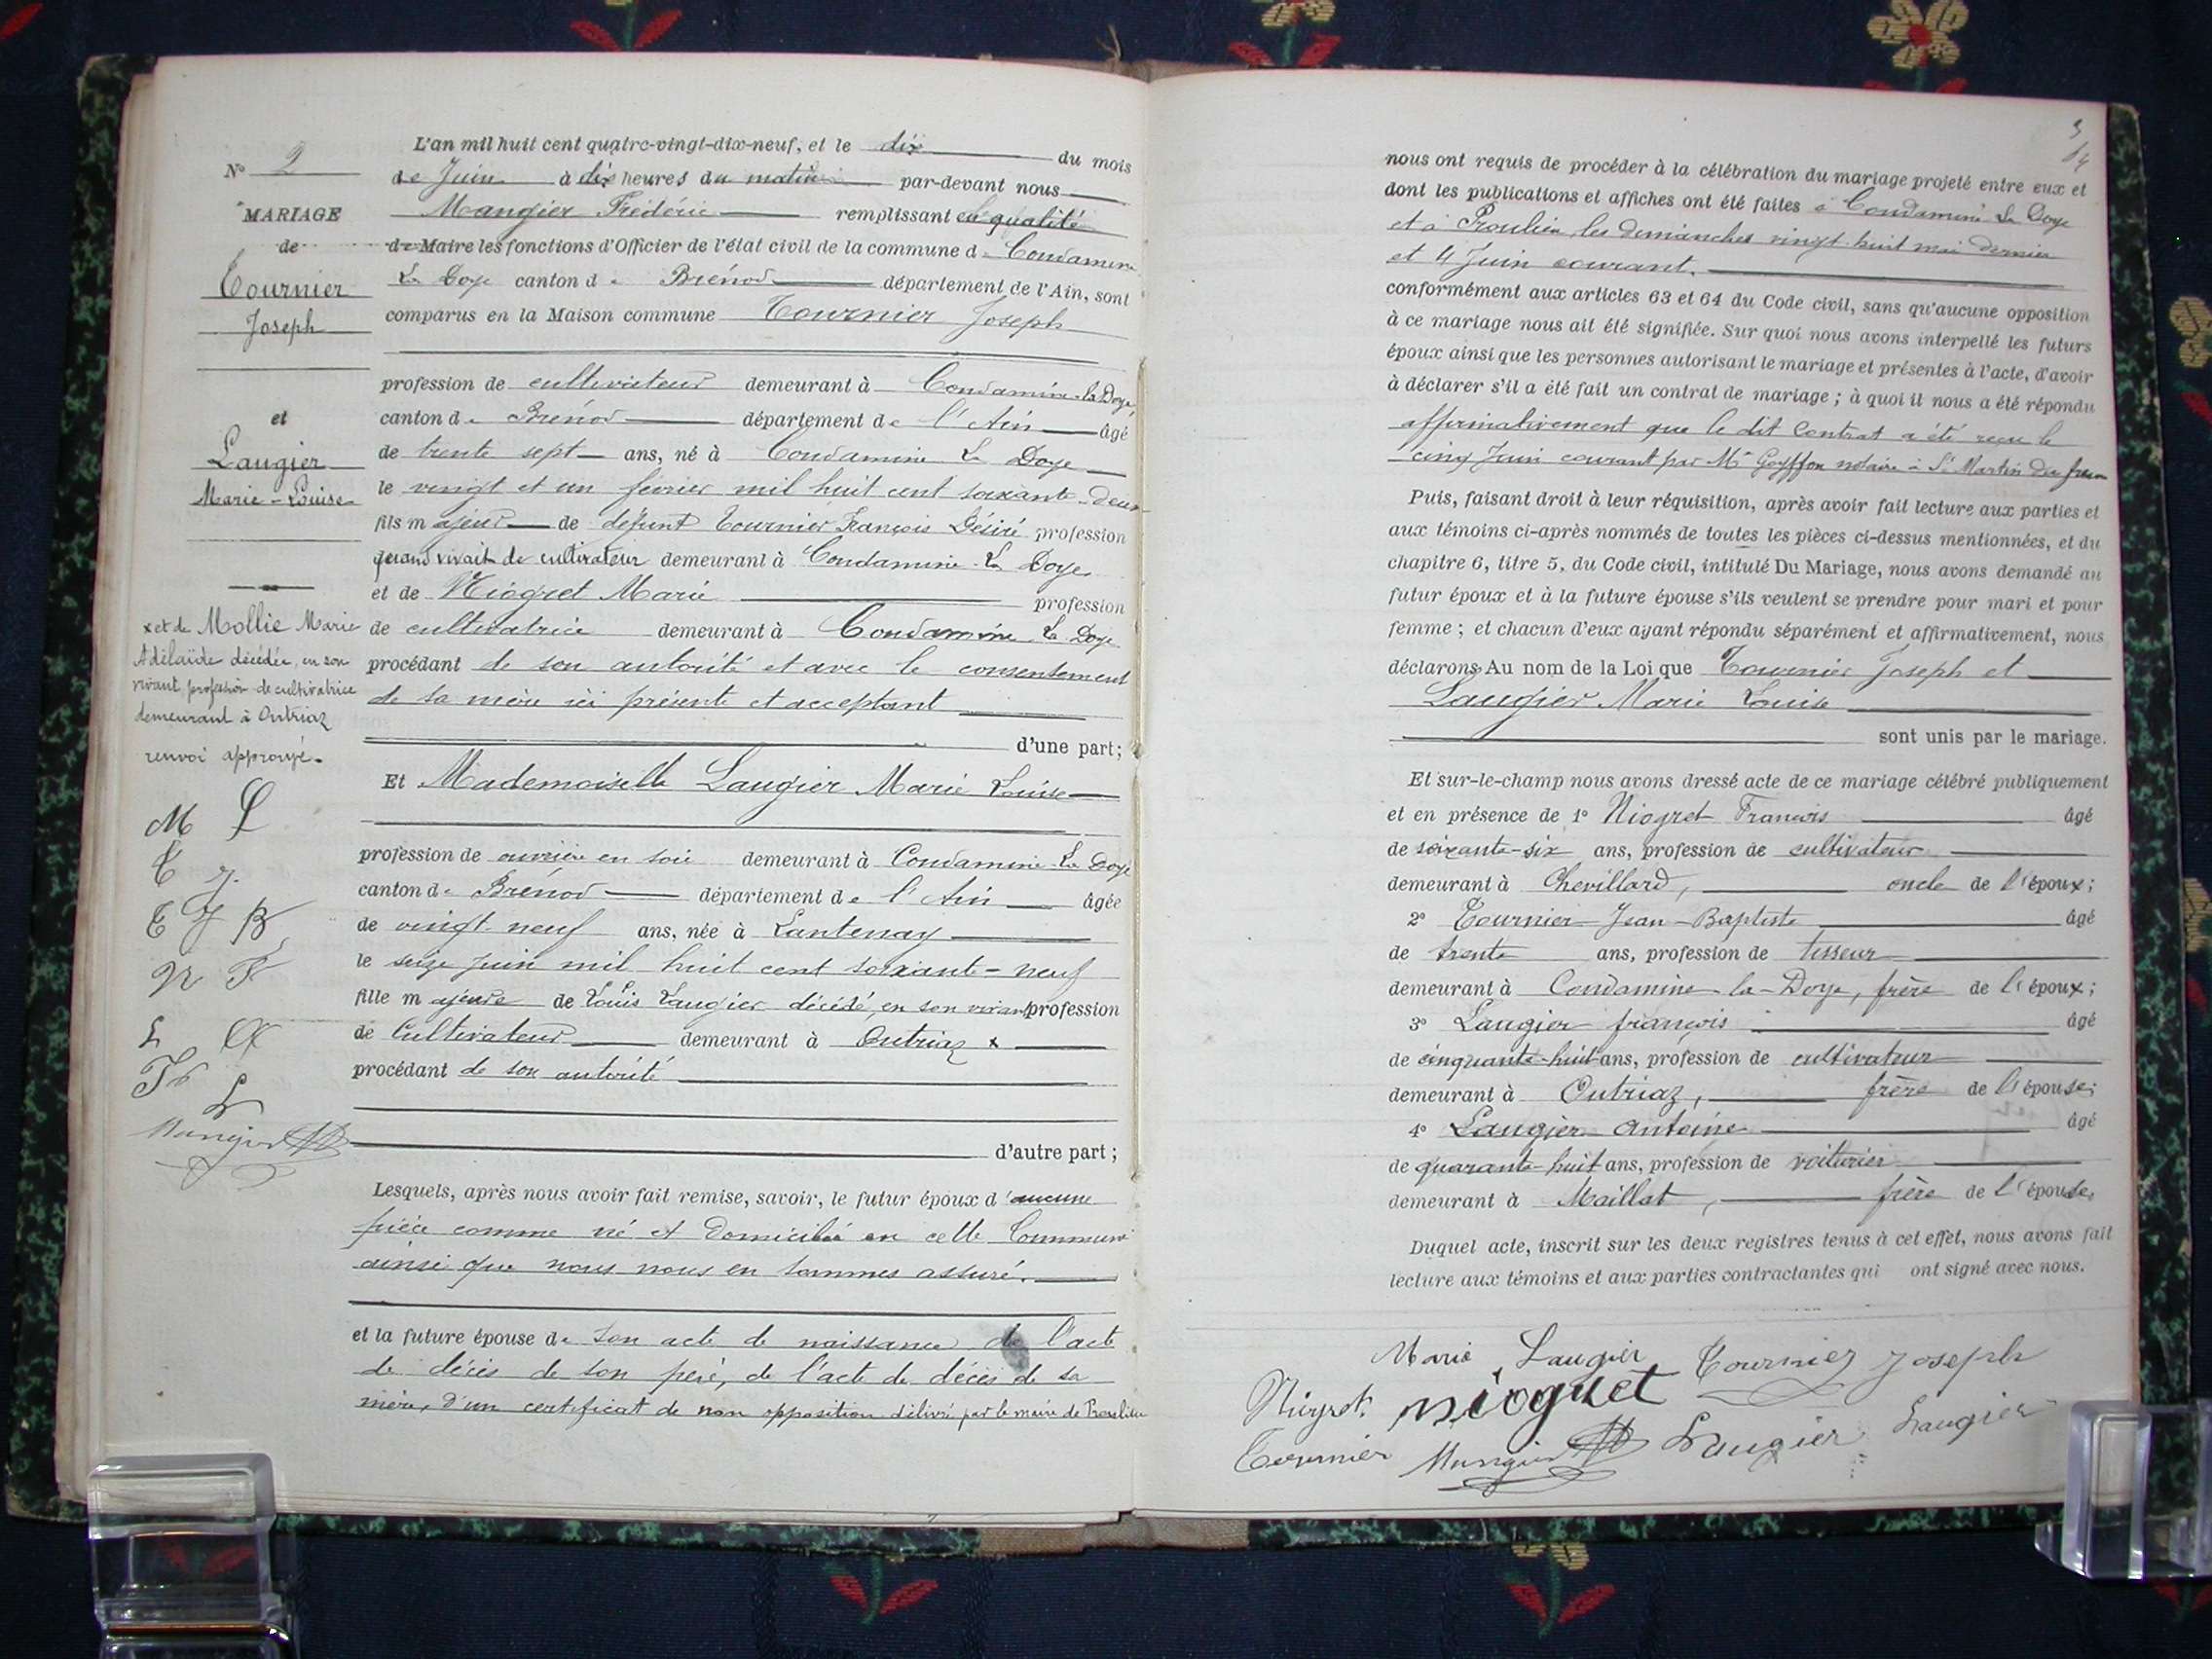 N° 2
MARIAGE
de
Tournier
Joseph
et
Laugier
Marie-Louise
x et de Mollie Marie
Adélaïde décédée, en son
vivant profession de cultivatrice
demeurant à Outriaz
renvoi approuvé.
M L
T J.
T J B
N F
L A
L
Mangier
L'an mil huit cent quatre-vingt-dix-neuf, et le dix du mois
de Juin à dix heures du matin par-devant nous
Mangier Frédéric remplissant en qualité
de Maire les fonctions d'Officier de l'état civil de la commune de Condamine
La Doye canton de Brénod département de l'Ain, sont
comparus en la Maison commune Tournier Joseph
profession de cultivateur demeurant à Condamine-la Doye,
canton de Brénod département de l'Ain âgé
de trente sept ans, né à Condamine La Doye
le vingt et un février mil huit cent soixante-deux
fils majeur de défunt Tournier François Désiré profession
quand vivait de cultivateur demeurant à Condamine-La Doye
et de Niogret Marie profession
de cultivatrice demeurant à Condamine La Doye
procédant de son autorité et avec le consentement
de sa mère ici présente et acceptant
d'une part;
Et Mademoiselle Laugier Marie Louise
profession de ouvrière en soie demeurant à Condamine-La Doye
canton de Brénod département de l'Ain âgée
de vingt-neuf ans, née à Lantenay
le seize juin mil huit cent soixante-neuf
fille majeure de Louis Laugier décédé, en son vivant profession
de Cultivateur demeurant à Outriaz x
procédant de son autorité
d'autre part;
Lesquels, après nous avoir fait remise, savoir, le futur époux d'aucune
pièce comme né et domicilié en cette Commune
ainsi que nous nous en sommes assuré.
et la future épouse de son acte de naissance, de l'acte
de décès de son père, de l'acte de décès de sa
mère, d'un certificat de non opposition délivré par le maire de Proulieu
3
nous ont requis de procéder à la célébration du mariage projeté entre eux et
dont les publications et affiches ont été faites à Condamine La Doye
et à Proulieu, les dimanches vingt-huit mai dernier
et 4 Juin courant.
conformément aux articles 63 et 64 du Code civil, sans qu'aucune opposition
à ce mariage nous ait été signifiée. Sur quoi nous avons interpellé les futurs
époux ainsi que les personnes autorisant le mariage et présentes à l'acte, d'avoir
à déclarer s'il a été fait un contrat de mariage; à quoi il nous a été répondu
affirmativement que le dit Contrat a été reçu le
cinq Juin courant par Me Goyffon notaire à St Martin du frene
Puis, faisant droit à leur réquisition, après avoir fait lecture aux parties et
aux témoins ci-après nommés de toutes les pièces ci-dessus mentionnées, et du
chapitre 6, titre 5, du Code civil, intitulé Du Mariage, nous avons demandé au
futur époux et à la future épouse s'ils veulent se prendre pour mari et pour
femme; et chacun d'eux ayant répondu séparément et affirmativement, nous
déclarons Au nom de la Loi que Tournier Joseph et
Laugier Marie Louise
sont unis par le mariage.
Et sur-le-champ nous avons dressé acte de ce mariage célébré publiquement
et en présence de 1° Niogret François âgé
de soixante-six ans, profession de cultivateur
demeurant à Chevillard, oncle de l'époux;
2° Tournier Jean-Baptiste âgé
de trente ans, profession de tisseur
demeurant à Condamine-la-Doye, frère de l'époux;
3° Laugier françois âgé
de cinquante-huit ans, profession de cultivateur
demeurant à Outriaz, frère de l'épouse;
4° Laugier Antoine âgé
de quarante-huit ans, profession de voiturier
demeurant à Maillat, frère de l'épouse,
Duquel acte, inscrit sur les deux registres tenus à cet effet, nous avons fait
lecture aux témoins et aux parties contractantes qui ont signé avec nous.
Marie Laugier Tournier Joseph
Niogret. niogret
Tournier Mangier Laugier Laugier